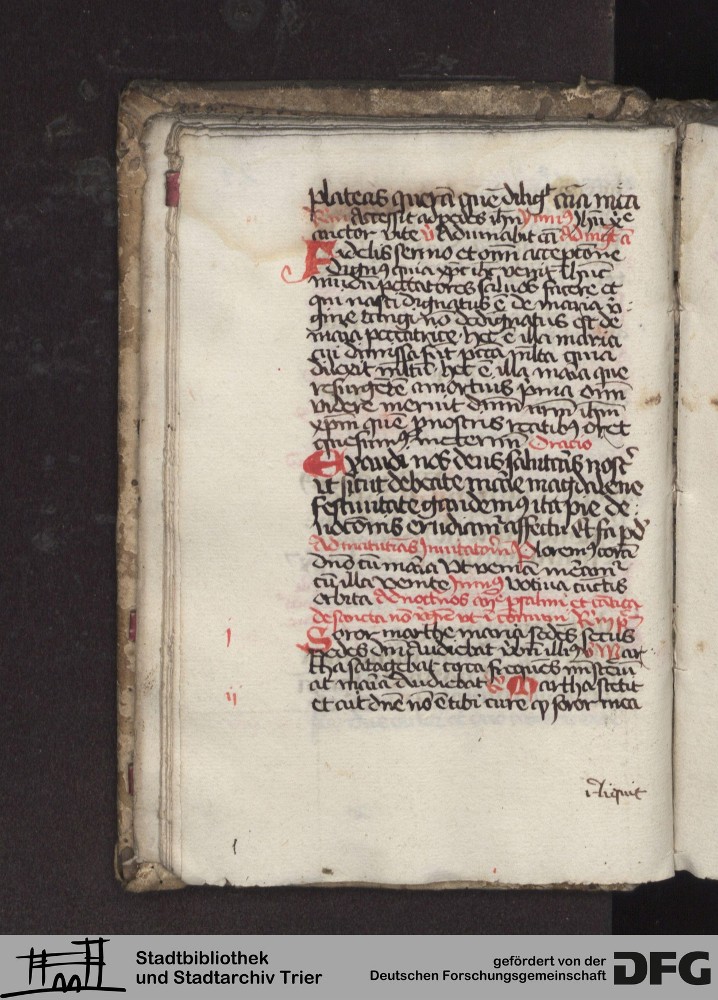 plateas querā quē diligit aīa mea
accessit ad pedes ihu ymnus Ihū xpe
auctor vite
Fidelis sermo et omī acceptōne
dignus quia xpc ihc venit ī hūc
mūdū peccatores saluos facere et
qui nasci dignatus ē de maria v̄
gine tangi nō dedignatus est de
maria peccatrice hec ē illa maria
cui dimissa sūt pctā mlta quia
dilexit multū hec ē illa maria que
resurgētē a mortuis prima omī
videre meruit dnm nrm ihm
xpm que p nostris reatibus oret
quesumus ineternū Oracio
Exaudi nos deus salutaris noster
ut sicut de beate marie magdalene
festiuitate gaudemus ita pie de
uocōnis erudiamur affectu
Ad matutinas Inuitatoriū Ploremus corā
dnō cū maria Vt veniā
cū illa Venite ymnus Votiua cunctis
orbita Ad nocturnos psalmi et
de
Soror marthe maria sedēs secus
pedes dnī audiebat verbū illius Mar
tha satagebat circa freques misteriū
at maria audiebat Martha stetit
et ait dne nō ē tibi cure quod soror mea
i
ii
reliquit
Stadtbibliothek
und Stadtarchiv Trier
gefördert von der
Deutschen Forschungsgemeinschaft
DFG